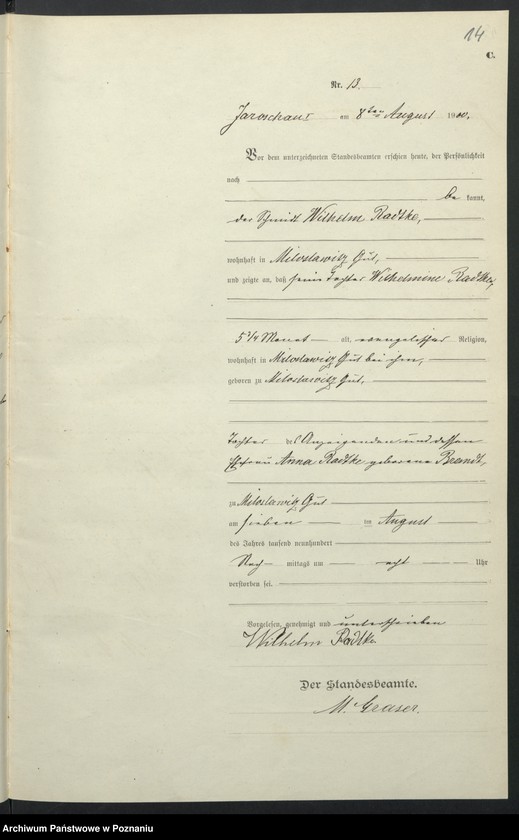 14
C.
Nr. 13.
Jaroschau am 8ten August 1900.
Vor dem unterzeichneten Standesbeamten erschien heute, der Persönlichkeit
nach
be kannt,
der Schmidt Wilhelm Radtke,
wohnhaft in Miloslawitz Gut,
und zeigte an, daß seine Tochter Wilhelmine Radtke,
5 3/4 Monat alt, evangelischer Religion,
wohnhaft in Miloslawitz Gut bei ihm,
geboren zu Miloslawitz Gut,
Tochter des Anzeigenden und dessen
Ehefrau Anna Radtke geborene Brandt,
zu Miloslawitz Gut
am sieben ten August
des Jahres tausend neunhundert
Nach mittags um acht Uhr
verstorben sei.
Vorgelesen, genehmigt und unterschrieben
Wilhelm Radtke.
Der Standesbeamte.
M. Graser.
Archiwum Państwowe w Poznaniu